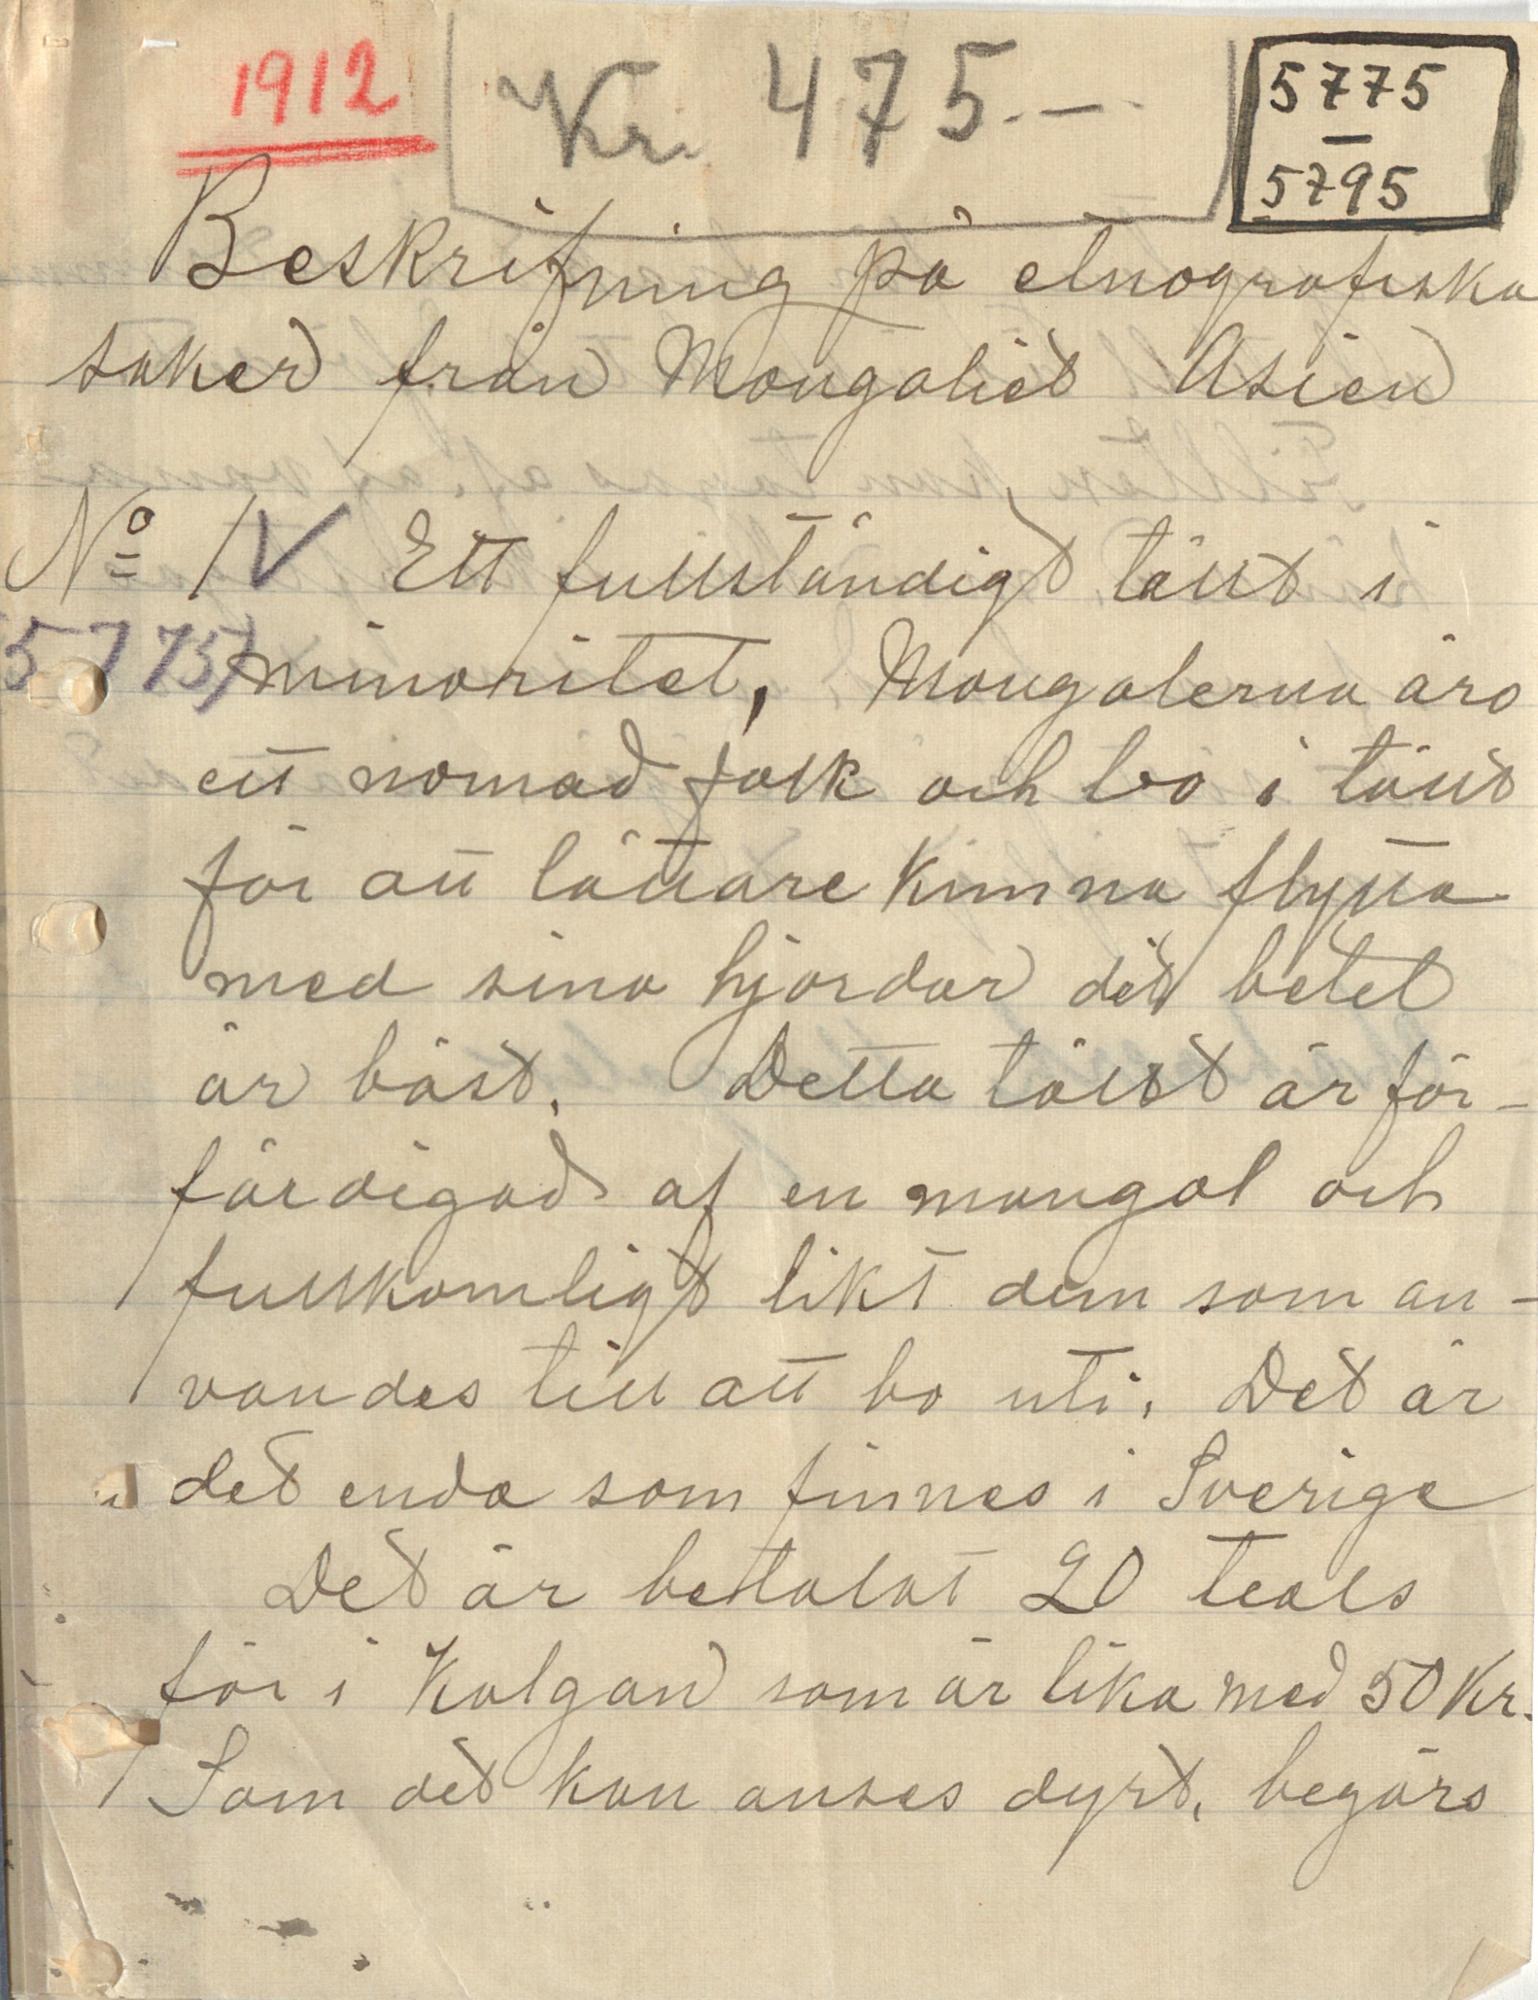 1912
Kr. 475.-
5775
—
5795
Beskrifning på etnografiska
saker från Mongoliet Asien
No 1 V Ett fullständigt tält i
5775) minoritet, Mongolerna äro
ett nomad folk och bo i tält
för att lättare kunna flytta
med sina hjordar dit betet
är bäst. Detta tält är för-
färdigad af en mongol och
fullkomligt likt dem som an-
vandes till att bo uti. Det är
det enda som finnes i Sverige
Det är betalat 20 teals
för i Kalgan som är lika med 50 Kr.
Som det kan anses dyrt, begärs